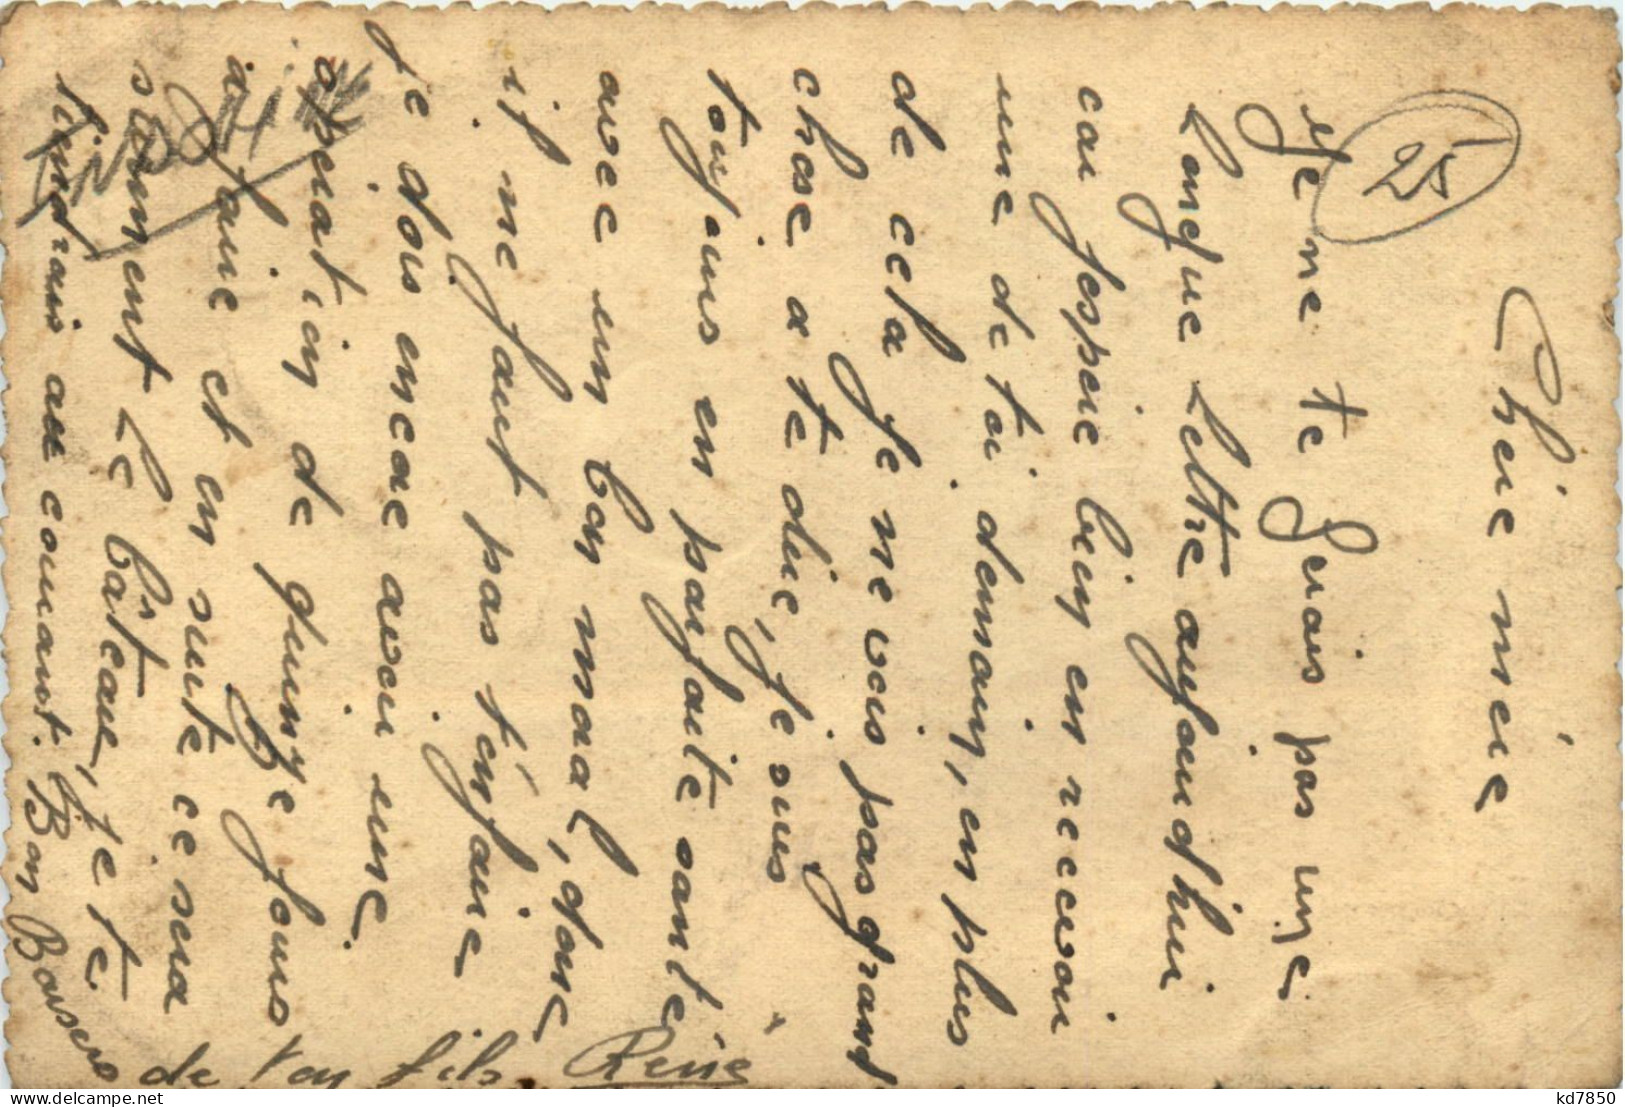 25
Chère mère
Je ne te ferais pas une
longue lettre aujourd'hui
car j'espère bien en recevoir
une de toi demain, en plus
de cela je ne vois pas grand
chose a te dire, je suis
toujours en parfaite santé
avec un bon moral, donc
il ne faut pas t'en faire
je dois encore avoir une
opération de quinze jours
a faire et en suite ce sera
sûrement le bâteau, je te
tiendrais au courant. Bon Baisers
de ton fils René
INDOCHINE
kd7850